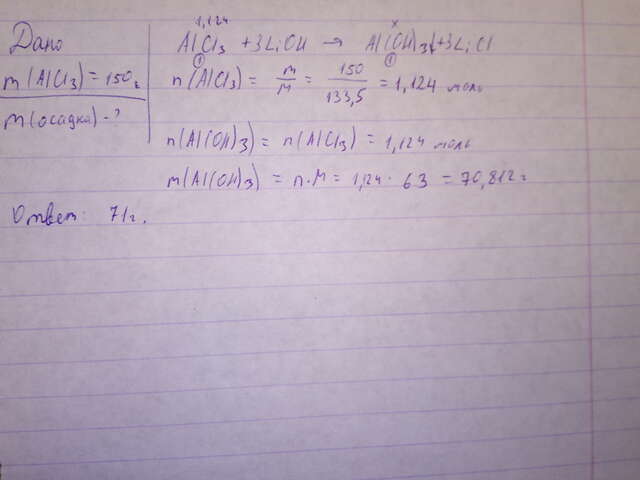 Дано
m(AlCl3) = 150г
m(осадка) - ?
1,124 x
AlCl3 + 3LiOH → Al(OH)3↓ + 3LiCl
1 1
n(AlCl3) = m/M = 150/133,5 = 1,124 моль
n(Al(OH)3) = n(AlCl3) = 1,124 моль
m(Al(OH)3) = n·M = 1,124 · 63 = 70,812г
Ответ: 71г.